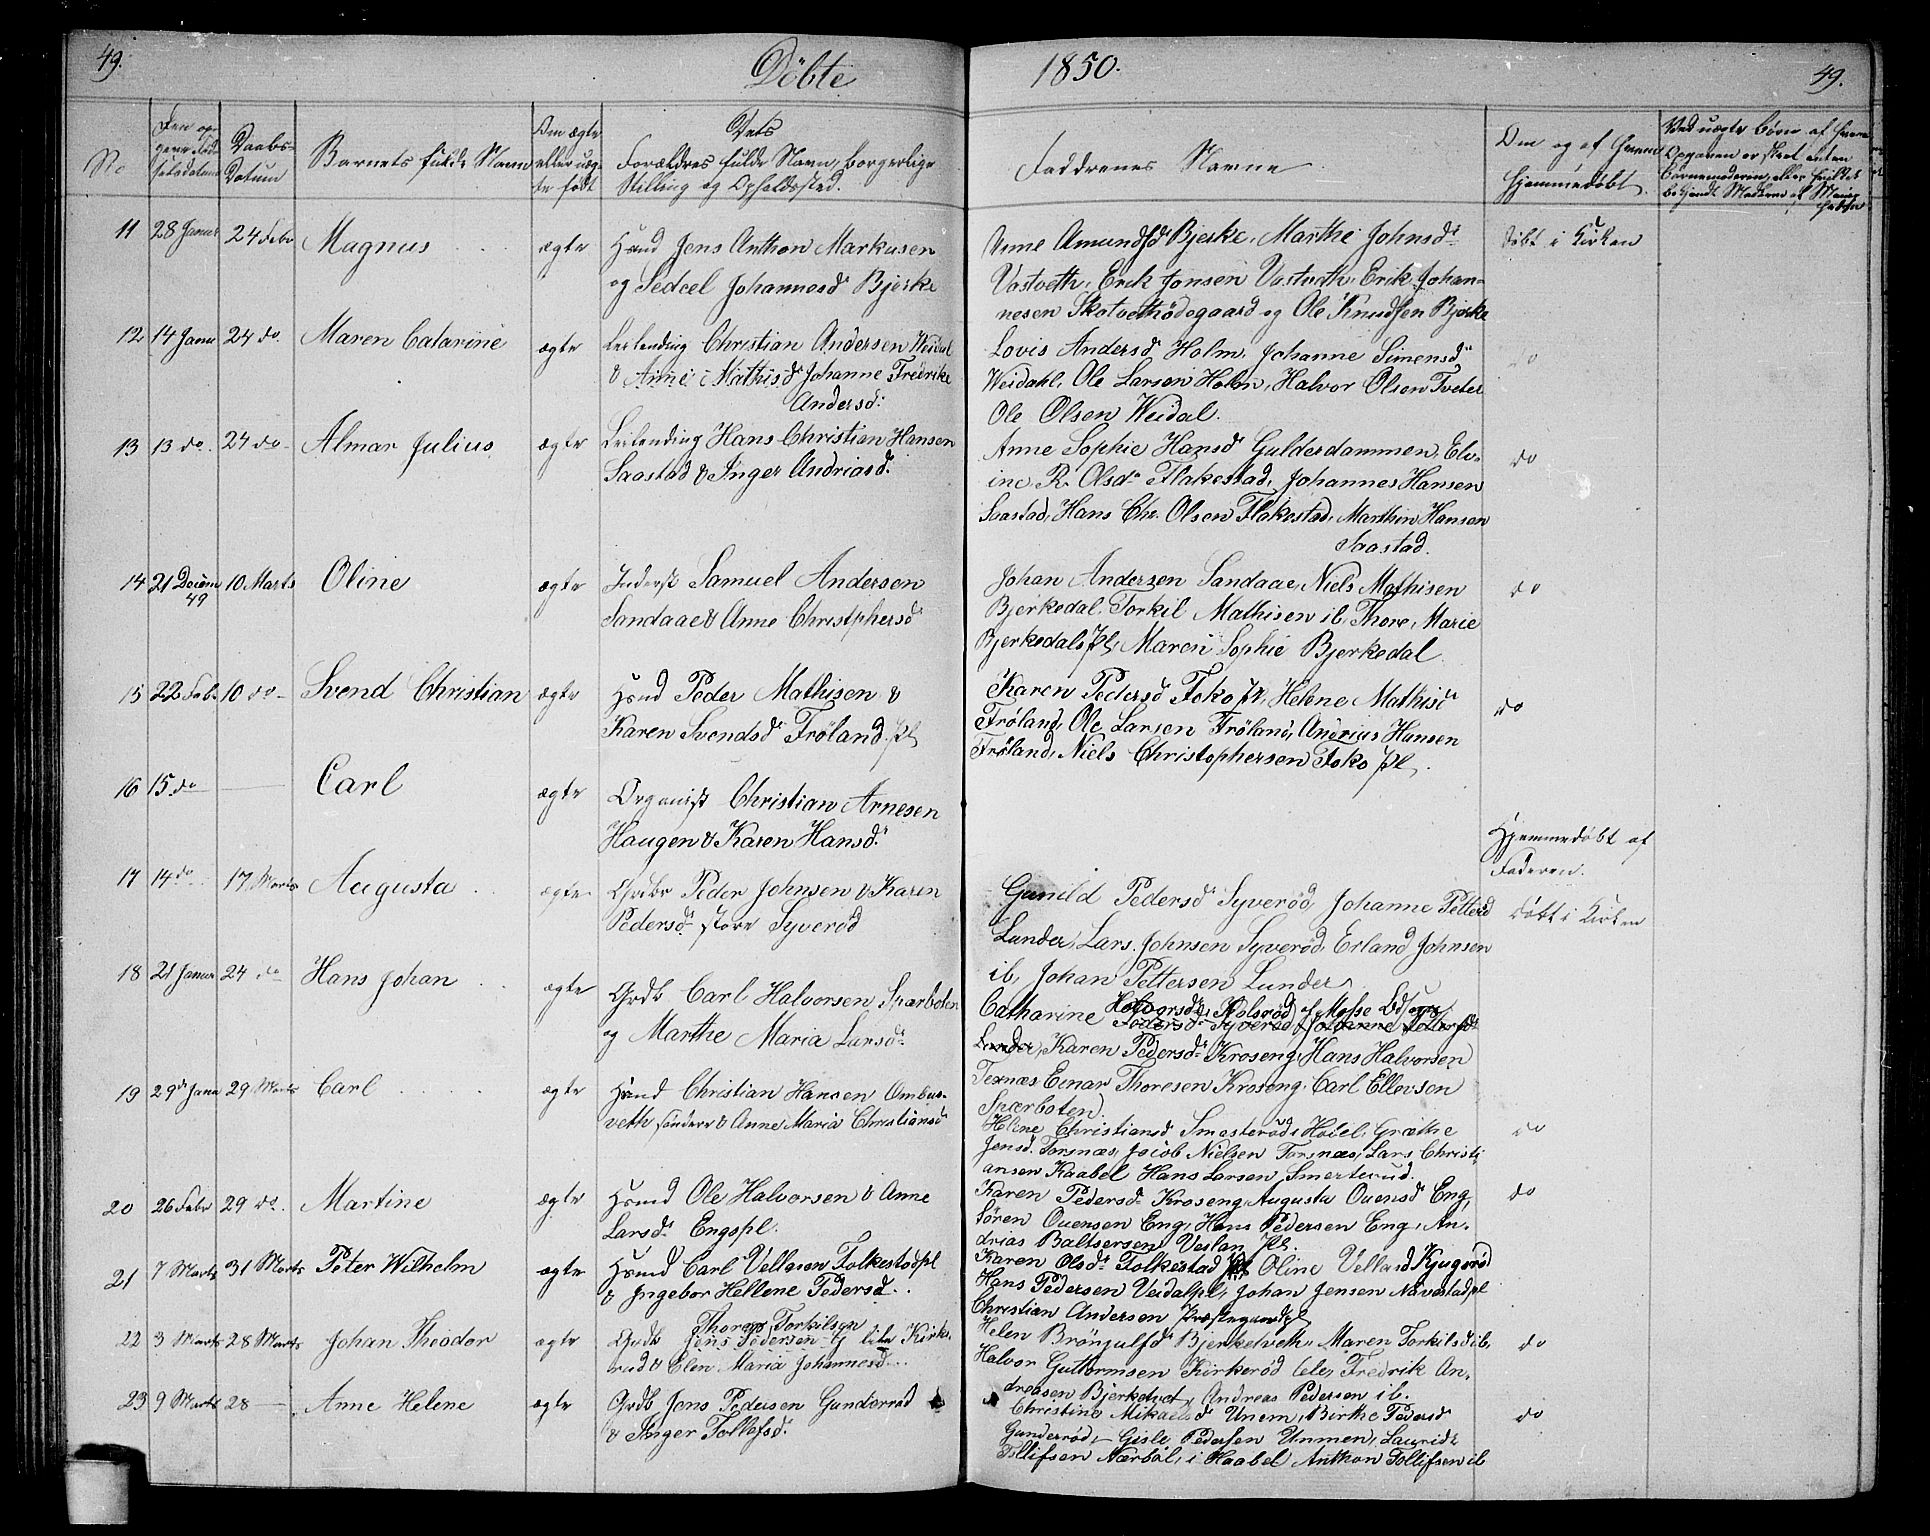 49.
Döbte
1850.
49.
No
Den op-
givne Föd-
selsdatum
Daabs-
Datum
Barnets fulde Navn
Om ægte
eller uæg-
te født
Dets
Forældres fulde Navn, borgerlige
Stilling og Opholdssted.
Faddrenes Navne
Om og af hvem
hjemmedøbt.
Ved uægte Børn af hvem
Opgaven er skeet enten
Barnemoderen, eller
11 28 Janur 24 Febr Magnus ægte Hsmd Jens Anthon Markusen
og Sedcel Johannesdr Bjerke
Anne Amundsdr Bjerke, Marthe Johnsdr
Vestveth, Erik Jonsen Vastveth, Erik Johan-
nesen Skotvethødegaard og Ole Knudsen Bjerke
Döbt i Kirken
12 14 Janu 24 do. Maren Catarine ægte Leilending Christian Andersen Weidal
& Anne Mathisdr Johanne Fredrike
Andersdr
Lovis Andersd Holm, Johanne Simensdr
Weidahl, Ole Larsen Holm, Halvor Olsen Tveter
Ole Olsen Weidal.
do
13 13 do. 24 do Almar Julius ægte Leilending Hans Christian Hansen
Saastad & Inger Andriasdr
Anne Sophie Hansdr Guldersdammen, Elv-
ine R. Olsdr Flakestad, Johannes Hansen
Saastad, Hans Chr. Olsen Flakestad, Marthin Hansen
Saastad.
do
14 21 Decem 49 10 Marts Oline ægte Inderst Samuel Andersen
Sandaae & Anne Christphersdr
Johan Andersen Sandaae, Niels Mathisen
Bjerkedal, Torkil Mathisen ib, Thore, Marie
Bjerkedalspl, Maren Sophie Bjerkedal
do
15 22 Feb. 10 do Svend Christian ægte Hsmd Peder Mathisen &
Karen Svendsdr Fröland pl
Karen Pedersdr Foko pl, Helene Mathisdr
Fröland, Ole Larsen Fröland, Andrius Hansen
Fröland, Niels Christophersen Foko pl.
do
16 15 do Carl ægte Organist Christian Arnesen
Haugen & Karen Hansdr.
Hjemmedøbt af
Faderen.
17 14 do 17 Marts Augusta ægte Grdbr Peder Johnsen & Karen
Pedersdr store Syveröd
Gunild Pedersdr Syveröd, Johanne Petters
Lunder, Lars Johnsen Syveröd, Erland Johnsen
ib, Johan Pettersen Lunder
Döbt i Kirken
18 21 Janur 24 do Hans Johan ægte Grdb Carl Halvorsen Spærboten
og Marthe Maria Larsdr
Catharine Halvorsdr
Karen Pedersdr Kroseng, Hans Halvorsen
Texnæs Einar Thoresen Kroseng, Carl Ellevsen
Spærboten.
19 29de Janu 29 Marts Carl ægte Hsmd Christian Hansen Ombus-
veth søndere & Anne Maria Christiansd
Helene Christiansd Smesteröd, Hotel, Græthe
Jensd. Torsnæs, Jacob Nielsen Torsnæs, Lars Christi
ansen Kaabel Hans Larsen Smerterud.
do
20 26 Febr 29 do. Martine ægte Hsmd Ole Halvorsen & Anne
Larsdr Engspl.
Karen Pedersdr Kroseng, Augusta Ouensd Eng,
Sören Ouensen Eng, Hans Pedersen Eng, An-
drias Baltsersen Veslan pl.
do
21 7 Marts 31 Marts Peter Wilhelm ægte Hsmd Carl Vellasen Folkestadpl
& Ingebor Hellene Pedersd.
Karen Olsdr Folkestad Oline Vellasd Kjugeröd
Hans Pedersen Veidalpl, Johan Jensen Navestadpl
Christian Andersen Præstegaardpl
22 3 Marts 28 Marts Johan Theodor ægte Grdb Thores Torkilsen
lille Kirke
rud & Elen Maria Johannesd.
Helen Bröngulfsdr Bjerketveth, Maren Torkilsd ib,
Halvor Guttormsen Kirkeröd lele, Fredrik An-
dreasen Bjerketvet, Andreas Pedersen ib.
do
23 9 Marts 28 Anne Helene ægte Grdb Jens Pedersen Gunderröd
& Inger Tollefsd.
Christine Mikaelsd Unem, Birthe Pedersd
Gunderröd, Gisle Pedersen Unmen, Lauridt
Tollifsen Nærböl, i Haabel Anthon Tollifsen ib
do